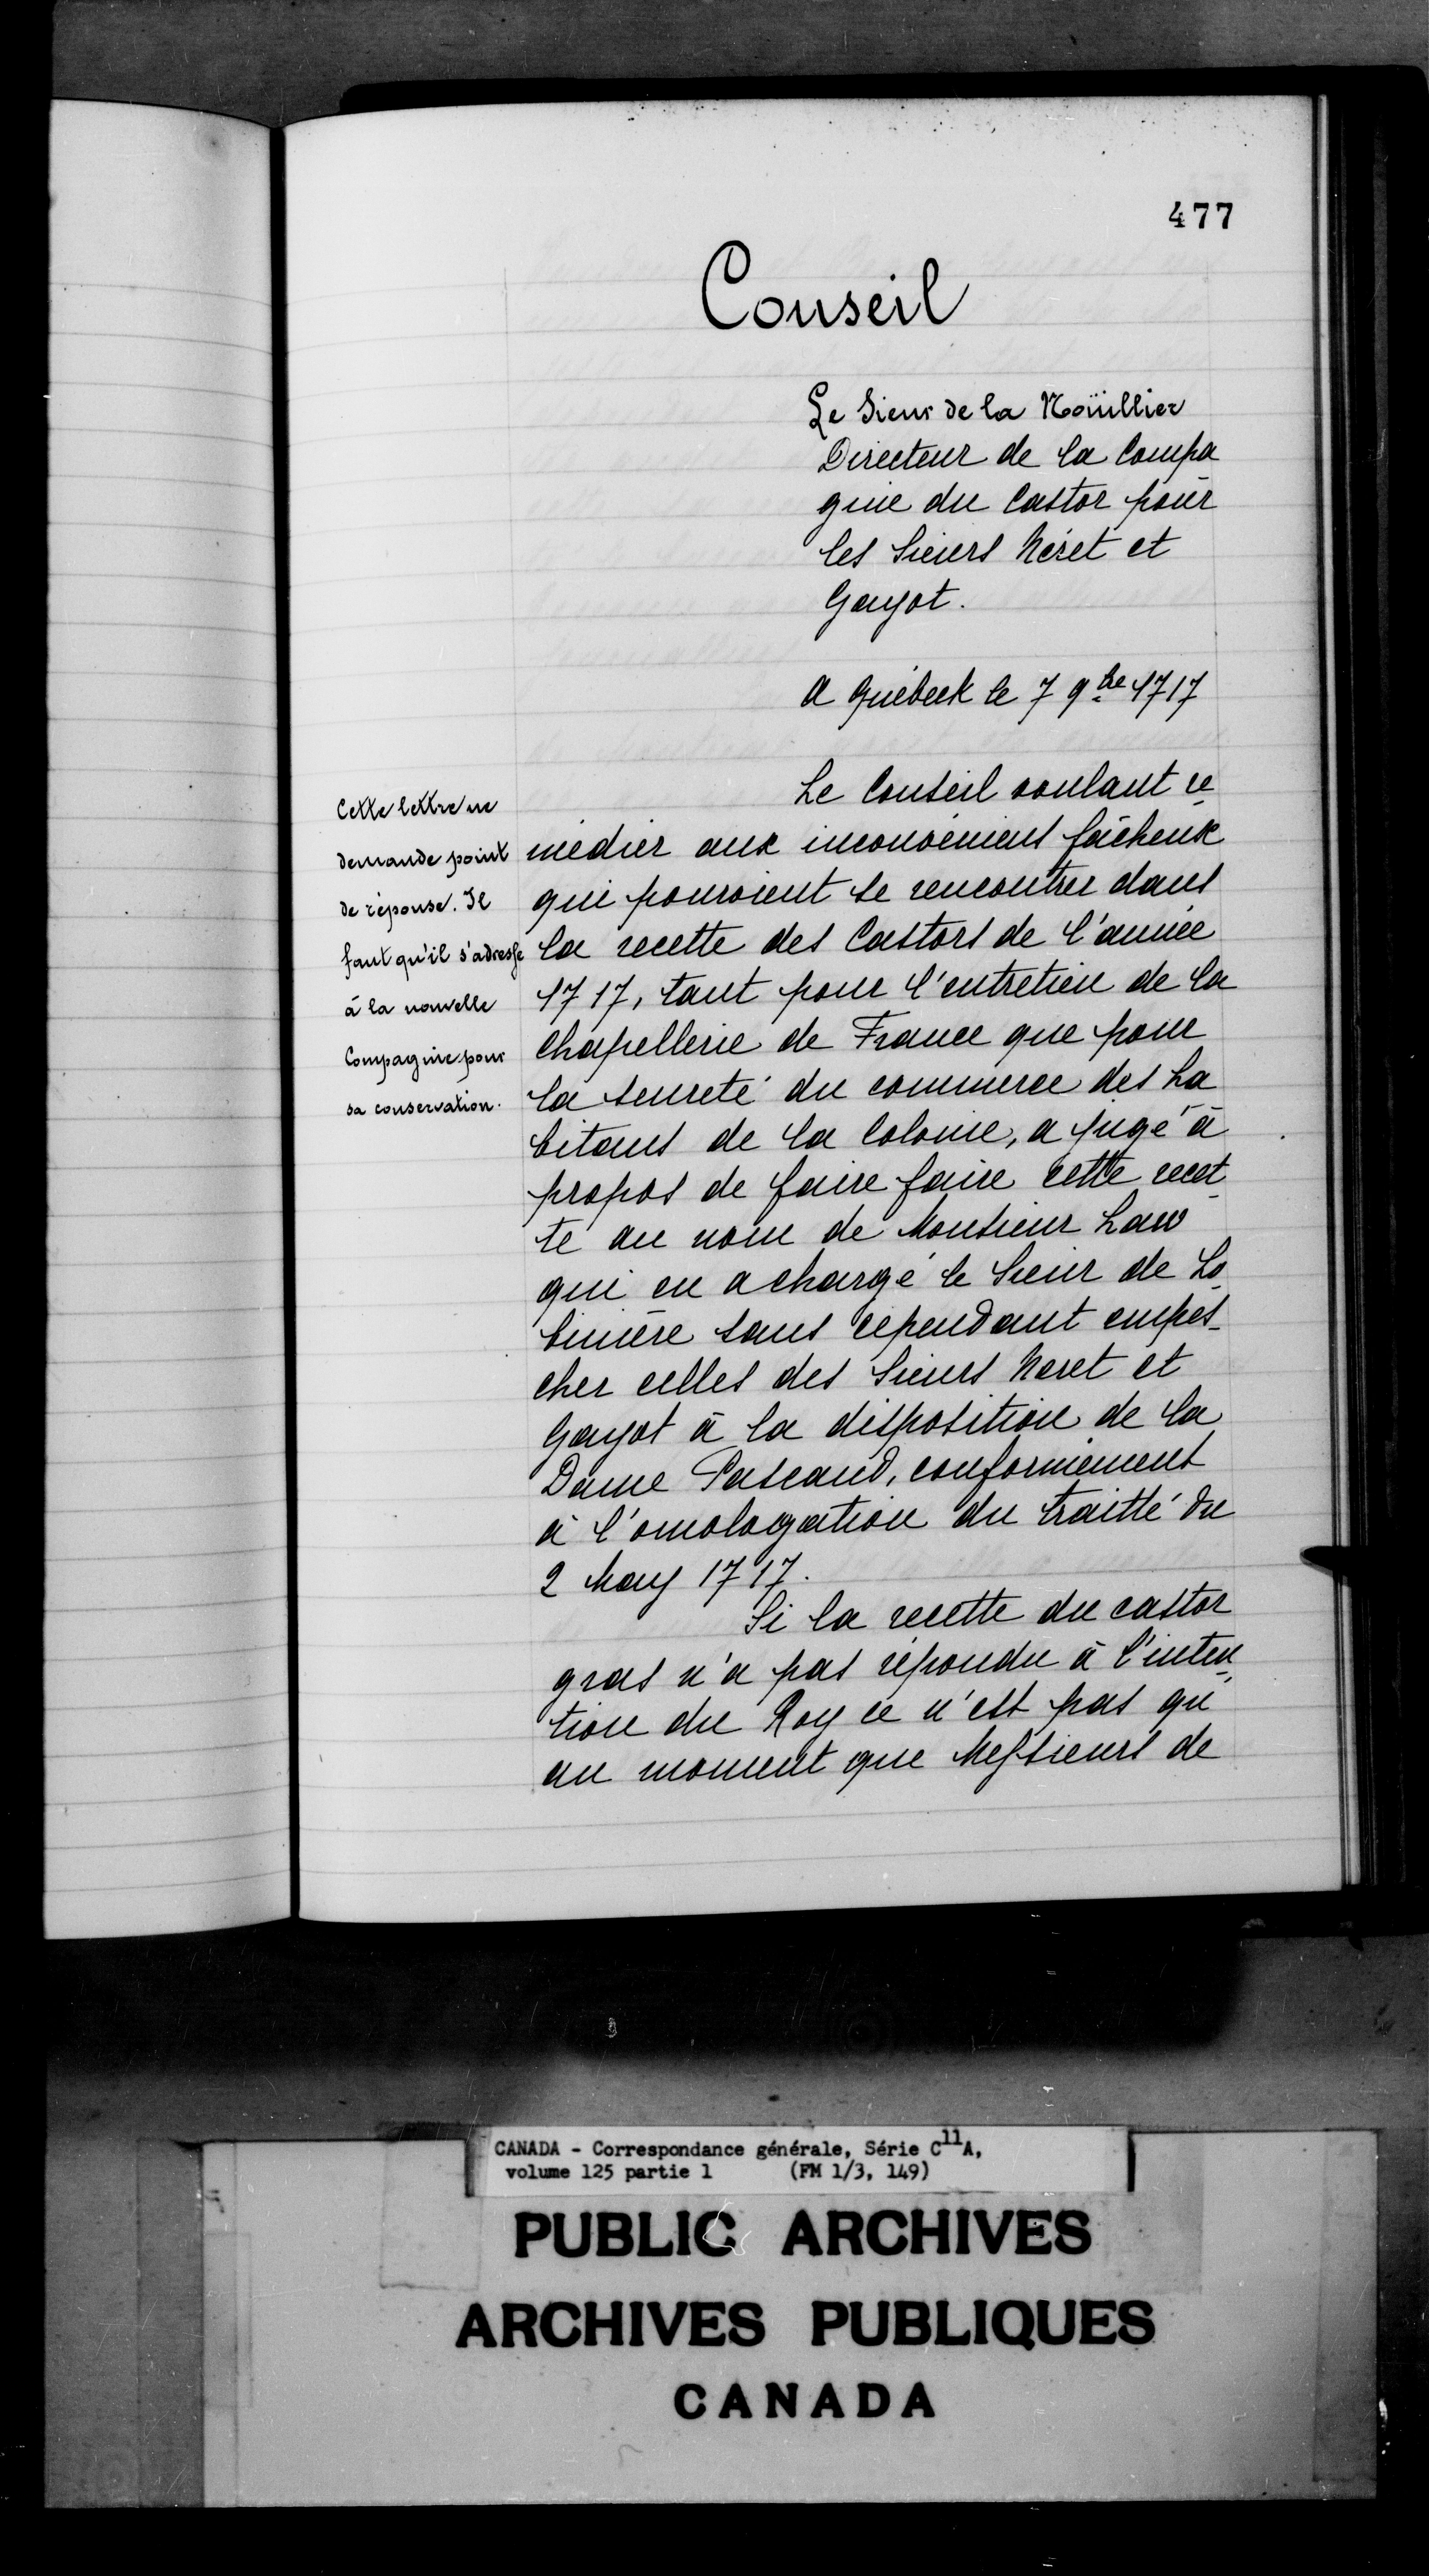 477
Conseil
Le Sieur de la Noüillier
Directeur de la Compa
gnie du Castor pour
les Sieurs Néret et
Gayot.
A Québeck le 7 9bre 1717
Cette lettre ne
demande point
de réponse. Il
faut qu'il s'adresse
à la nouvelle
Compagnie pour
sa conservation.
Le Conseil voulant re
médier aux inconvénient fâcheux
qui pouroient se rencontrer dans
la recette des Castors de l'année
1717, tant pour l'entretien de la
chapellerie de France que pour
la seureté du commerce des ha
bitans de la Colonie, a jugé à
propos de faire faire cette recet
te au nom de Monsieur Law
qui en a chargé le Sieur de Lo
binière sans cependant empes-
cher celles des Sieurs Neret et
Gayot à la disposition de la
Dame Pascaud, conformement
à l'omologation du traitté du
2 May 1717.
Si la recette du castor
gras n'a pas répondu à l'inten
tion du Roy ce n'est pas qu'
au moment que Messieurs de
CANADA - Correspondance générale, Série C11A,
volume 125 partie 1 (FM 1/3, 149)
PUBLIC ARCHIVES
ARCHIVES PUBLIQUES
CANADA